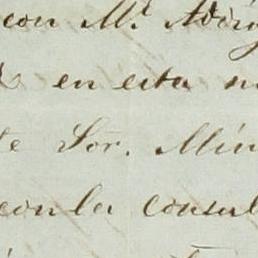 con Mr.
en esta
te Sor. Min
con la consul